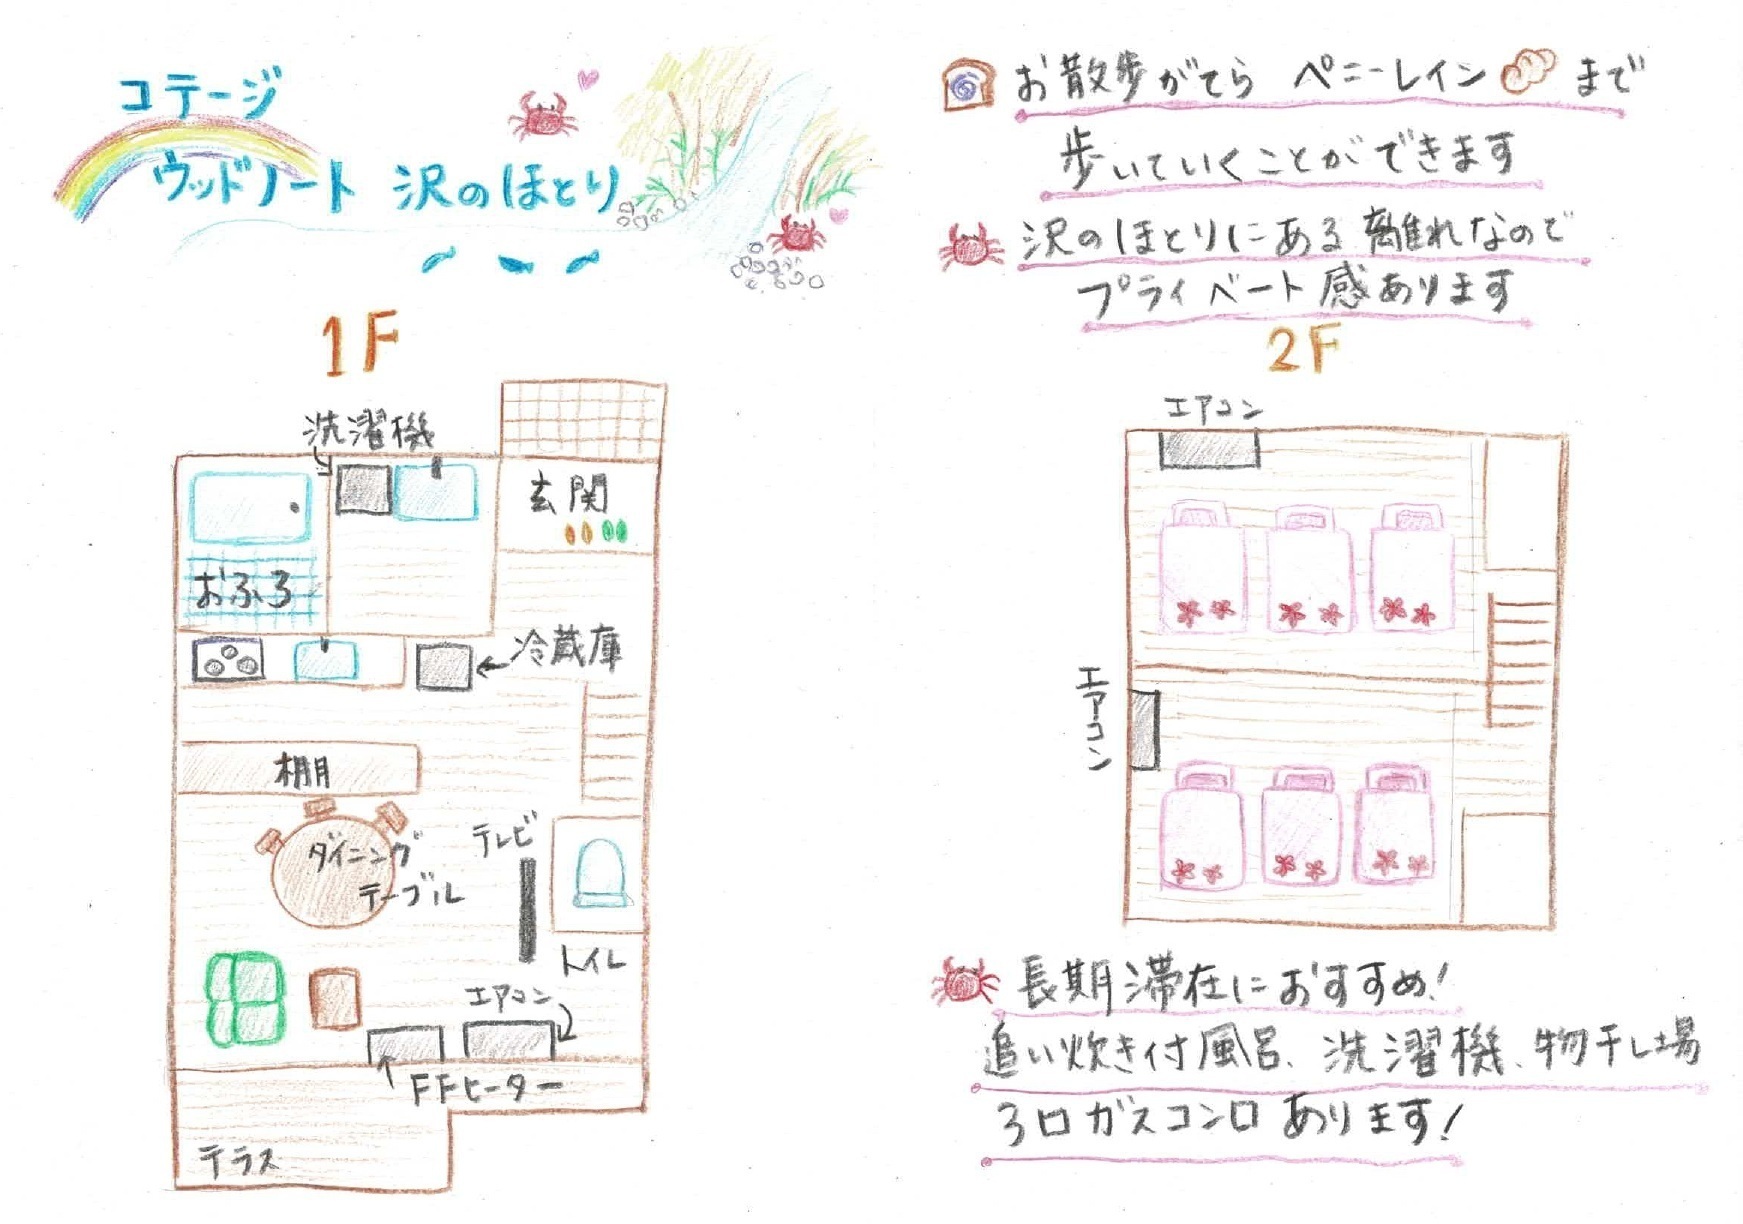 コテージ
ウッドノート 沢のほとり
1F
洗濯機
玄関
おふろ
冷蔵庫
棚
ダイニング
テーブル
テレビ
トイレ
エアコン
FFヒーター
テラス
お散歩がてら ペニーレイン まで
歩いていくことができます
沢のほとりにある離れなので
プライベート感あります
2F
エアコン
エアコン
長期滞在におすすめ!
追い炊き付風呂、洗濯機、物干し場
3口ガスコンロあります!